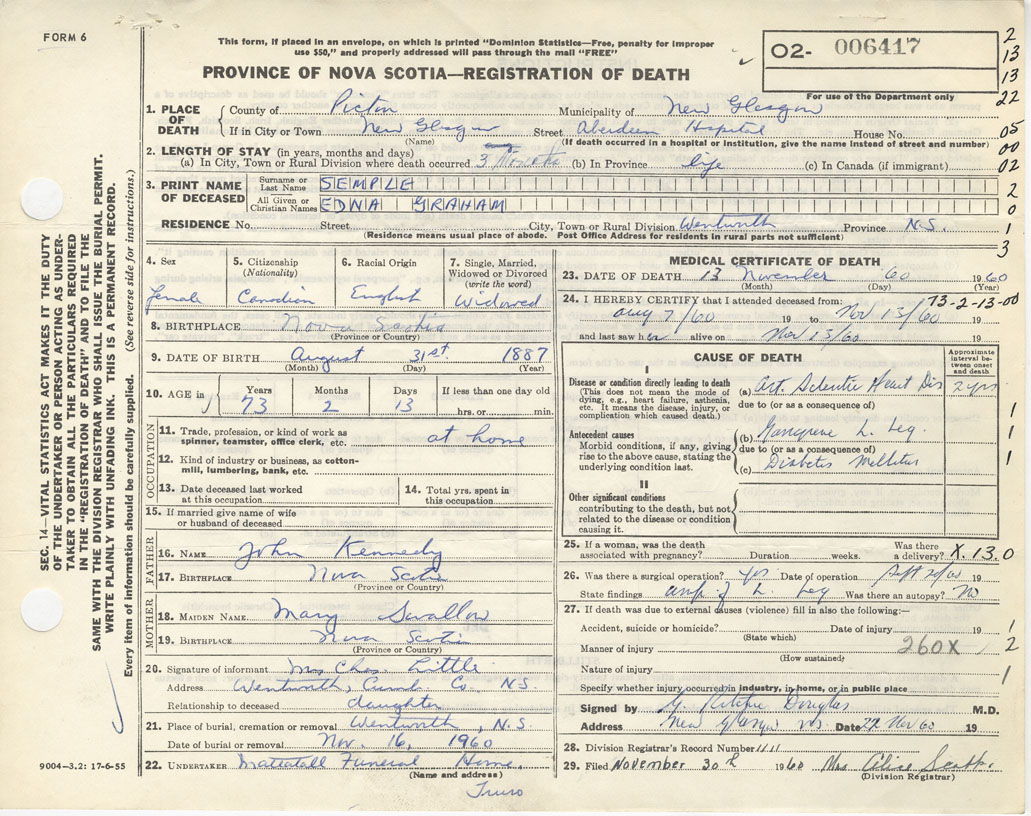 FORM 6
This form, if placed in an envelope, on which is printed "Dominion Statistics—Free, penalty for improper
use $50," and properly addressed will pass through the mail "FREE"
PROVINCE OF NOVA SCOTIA—REGISTRATION OF DEATH
O2- 006417
For use of the Department only
2
13
13
22
05
00
02
2
0
1
3
1. PLACE OF DEATH
County of Pictou Municipality of New Glasgow
If in City or Town New Glasgow Street Aberdeen Hospital House No.
(Name) (If death occurred in a hospital or institution, give the name instead of street and number)
2. LENGTH OF STAY (in years, months and days)
(a) In City, Town or Rural Division where death occurred 3 Months (b) In Province life (c) In Canada (if immigrant)
3. PRINT NAME OF DECEASED
Surname or Last Name SEMPLE
All Given or Christian Names EDNA GRAHAM
RESIDENCE No. Street City, Town or Rural Division Wentworth Province N.S.
(Residence means usual place of abode. Post Office Address for residents in rural parts not sufficient)
4. Sex
female
5. Citizenship
(Nationality)
Canadian
6. Racial Origin
English
7. Single, Married,
Widowed or Divorced
(write the word)
Widowed
8. BIRTHPLACE Nova Scotia
(Province or Country)
9. DATE OF BIRTH August 31st 1887
(Month) (Day) (Year)
10. AGE in
Years Months Days If less than one day old
73 2 13 hrs. or min.
OCCUPATION
11. Trade, profession, or kind of work as
spinner, teamster, office clerk, etc. at home
12. Kind of industry or business, as cotton-
mill, lumbering, bank, etc.
13. Date deceased last worked
at this occupation
14. Total yrs. spent in
this occupation
15. If married give name of wife
or husband of deceased
FATHER
16. NAME John Kennedy
17. BIRTHPLACE Nova Scotia
(Province or Country)
MOTHER
18. MAIDEN NAME Mary Swallow
19. BIRTHPLACE Nova Scotia
(Province or Country)
20. Signature of informant Mrs Chas. Little
Address Wentworth, Cumb Co. N.S.
Relationship to deceased daughter
21. Place of burial, cremation or removal Wentworth, N.S.
Date of burial or removal Nov. 16, 1960
22. UNDERTAKER Mattatall Funeral Home,
(Name and address)
Truro
9004-3.2: 17-6-55
MEDICAL CERTIFICATE OF DEATH
23. DATE OF DEATH 13 November '60 1960
(Month) (Day) (Year)
24. I HEREBY CERTIFY that I attended deceased from: 73-2-13-00
Aug 7/60 19 to Nov 13/60 19
and last saw her alive on Nov 13/60 19
CAUSE OF DEATH
Approximate interval between onset and death
I
Disease or condition directly leading to death
(This does not mean the mode of
dying, e.g., heart failure, asthenia,
etc. It means the disease, injury, or
complication which caused death.)
(a) Art. Sclerotic Heart Dis 2 yrs.
due to (or as a consequence of)
Antecedent causes
Morbid conditions, if any, giving
rise to the above cause, stating the
underlying condition last.
(b) Gangrene L. Leg.
due to (or as a consequence of)
(c) Diabetes Mellitus
1
1
1
II
Other significant conditions
contributing to the death, but not
related to the disease or condition
causing it.
25. If a woman, was the death
associated with pregnancy? Duration weeks. Was there
a delivery? X.13.0
26. Was there a surgical operation? yes Date of operation Sept 20/60 19
State findings amp. of L. Leg Was there an autopsy? No
27. If death was due to external causes (violence) fill in also the following:—
Accident, suicide or homicide? Date of injury 19
(State which)
Manner of injury 260X
(How sustained)
Nature of injury
1
2
1
Specify whether injury occurred in industry, in home, or in public place
Signed by G. Ritchie Douglas M.D.
Address New Glasgow N.S. Date 22 Nov 60 19
28. Division Registrar's Record Number 1111
29. Filed November 30th 1960 Mrs Alice Scott
(Division Registrar)
SEC. 14—VITAL STATISTICS ACT MAKES IT THE DUTY
OF THE UNDERTAKER OR PERSON ACTING AS UNDER-
TAKER TO OBTAIN ALL THE PARTICULARS REQUIRED
IN THE "REGISTRATION OF DEATH" AND TO FILE THE
SAME WITH THE DIVISION REGISTRAR WHO SHALL ISSUE THE BURIAL PERMIT.
WRITE PLAINLY WITH UNFADING INK. THIS IS A PERMANENT RECORD.
Every item of information should be carefully supplied. (See reverse side for instructions.)